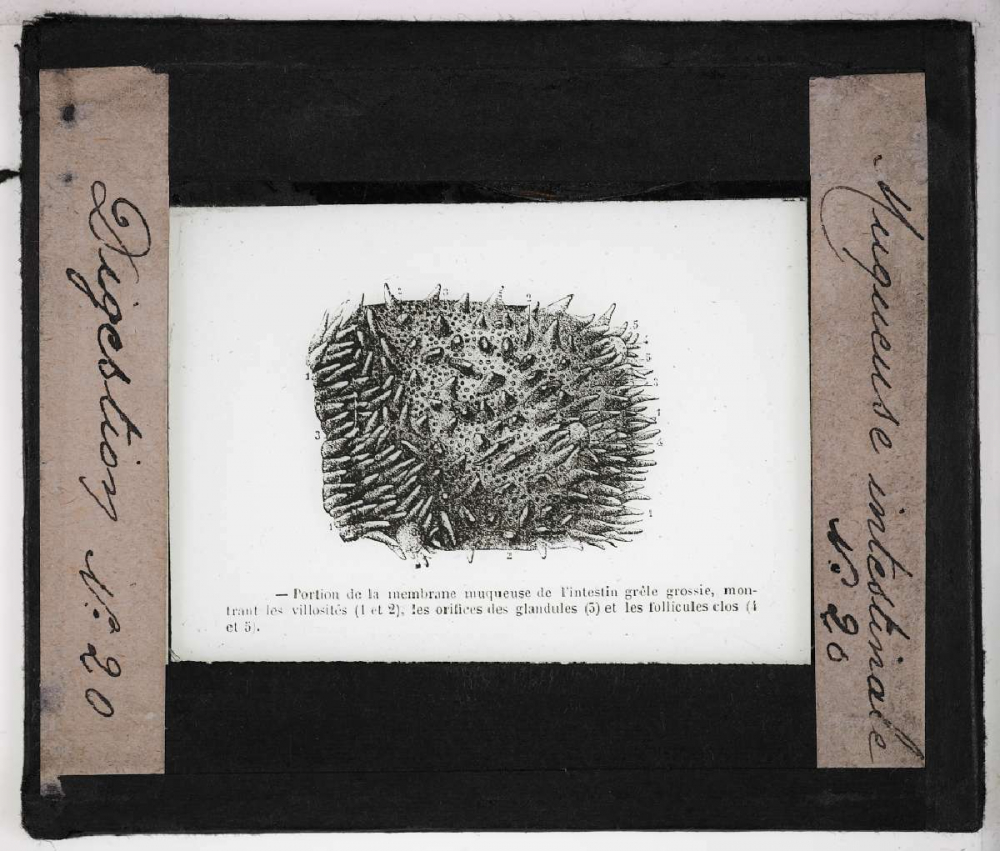 Digestion
N.º 20
— Portion de la membrane muqueuse de l'intestin grêle grossie, mon-
trant les villosités (1 et 2), les orifices des glandules (3) et les follicules clos (4
et 5).
Muqueuse intestinale
N.º 20